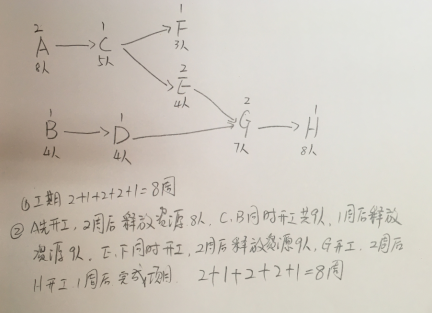 2
A
8人
1
C
5人
1
F
3人
2
E
4人
1
B
4人
1
D
4人
2
G
7人
1
H
8人
①工期 2+1+2+2+1=8周
②A先开工,2周后释放资源8人,C、B同时开工共9人,1周后释放
资源9人,E、F同时开工,2周后释放资源9人,G开工.2周后
H开工.1周后完成项目. 2+1+2+2+1=8周